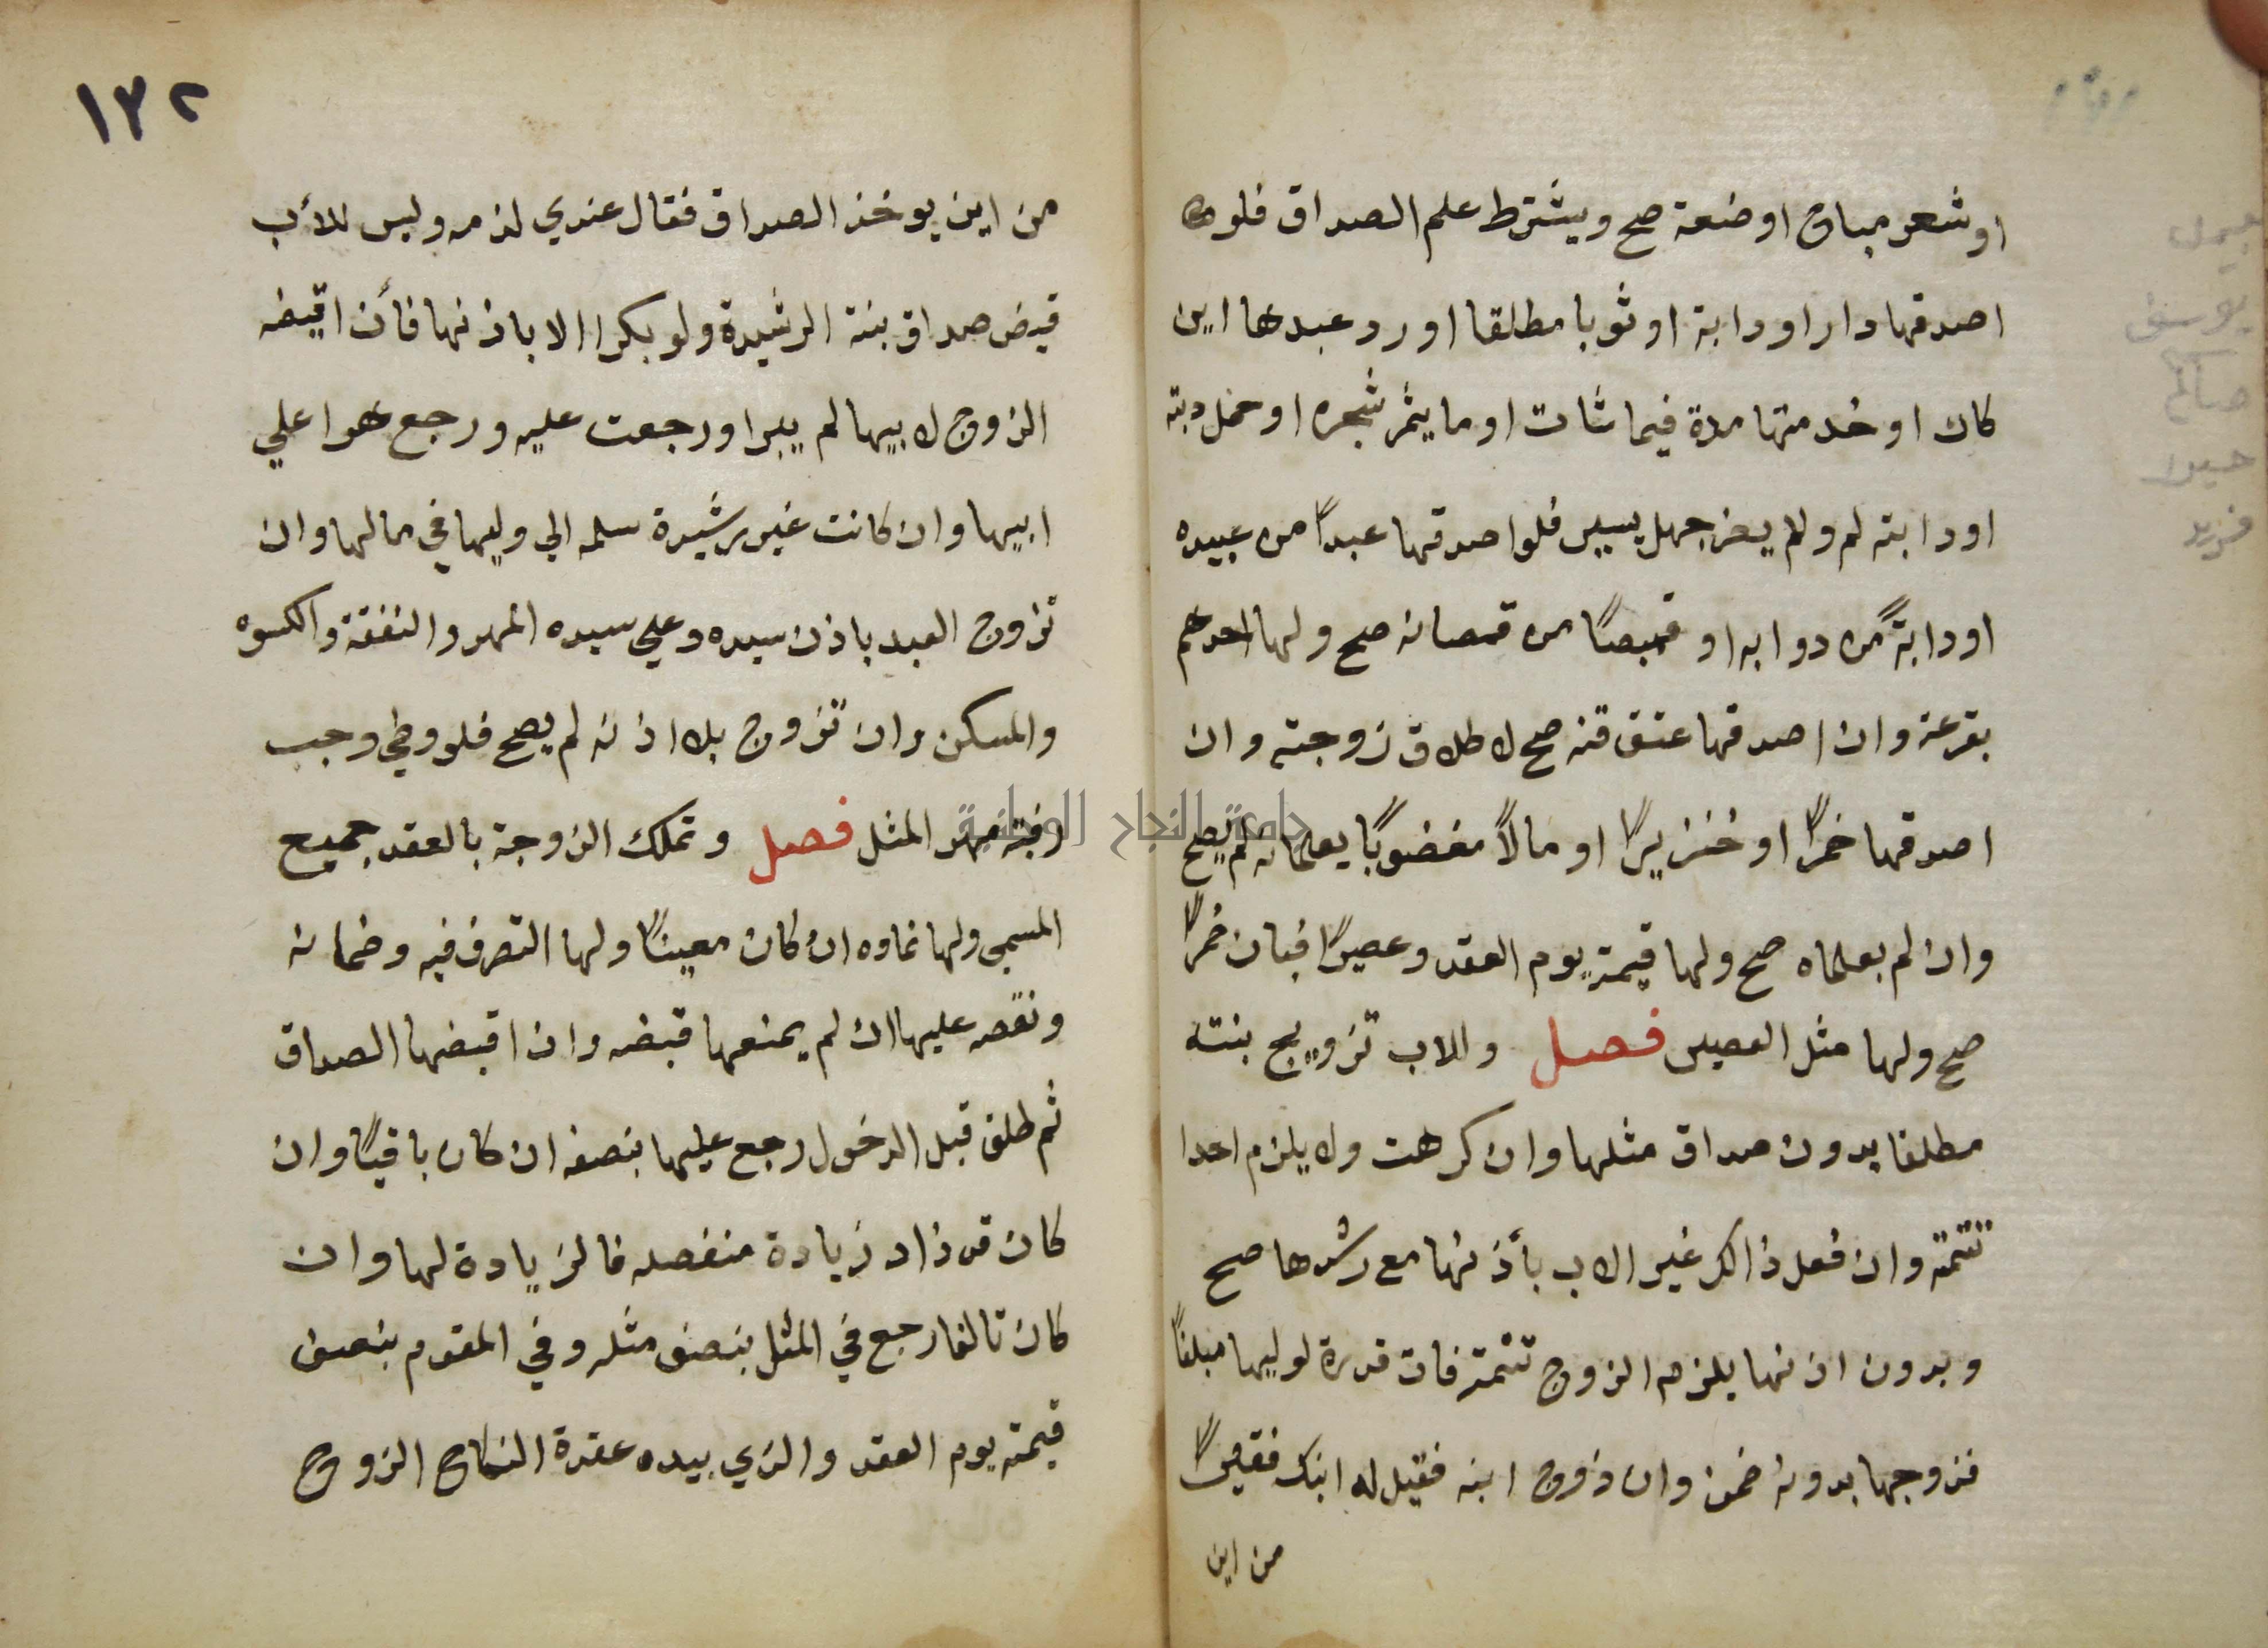 او شعر مباح او ضعة صح ويشترط علم الصداق فلو
اصدقها دارا او دابة او ثوبا مطلقا او رد عبدها اين
كان او خدمتها مدة فيما شات او ما يثمر شجره او حمل دبته
او دابته لم ولم يضر جهل يسير فلو اصدقها عبدًا من عبيده
او دابةً من دوابه او قميصًا من قمصانه صح ولها احدهم
بقرعة وان اصدقها عتق قنه صح لا طلاق زوجته وان
اصدقها خمرًا او خنزيرًا او مالًا مغضوبًا يعلمانه لم يصح
وان لم يعلماه صح ولها قيمته يوم العقد وعصيرًا فبان خمرًا
صح ولها مثل العصير فصل وللاب تزويج بنته
مطلقا بدون صداق مثلها وان كرهت ولا يلزم احدا
تتمته وان فعل ذالك غير الاب بأذنها مع رشدها صح
وبدون اذنها يلزم الزوج تتمته فات قدرة لوليها مبلغًا
فزوجها بدونه ضمن وان زوج ابنه فقيل له ابنك فقيرًا
من اين
١٣٢
من اين يوخذ الصداق فقال عندي لزمه وليس للأب
قبض صداق بنته الرشيدة ولو بكرا الا باذنها فأن اقبضه
الزوج لابيها لم يبرا ورجعت عليه ورجع هوا علي
ابيها وان كانت غير رشيدة سلمه الي وليها في مالها وان
تزوج العبد باذن سيده وعلي سيده المهر والنفقة والكسوه
والمسكن وان تزوج بلا اذنه لم يصح فلو وطي وجب
رقبته مهر المثل فصل وتملك الزوجة بالعقد جميع
المسمي ولها نماوه ان كان معينًا ولها التصرف فيه وضمانه
ونقصه عليها ان لم يمنعها قبضه وان اقبضها الصداق
ثم طلق قبل الدخول رجع عليها بنصفه ان كان باقيًا وان
كان قد زاد زيادة منفصله فالزيادة لها وان
كان تالفا رجع في المثل بنصف مثله وفي المقوم بنصف
قيمته يوم العقد والذي بيده عقدة النكاح الزوج
جامعة النجاح الوطنية